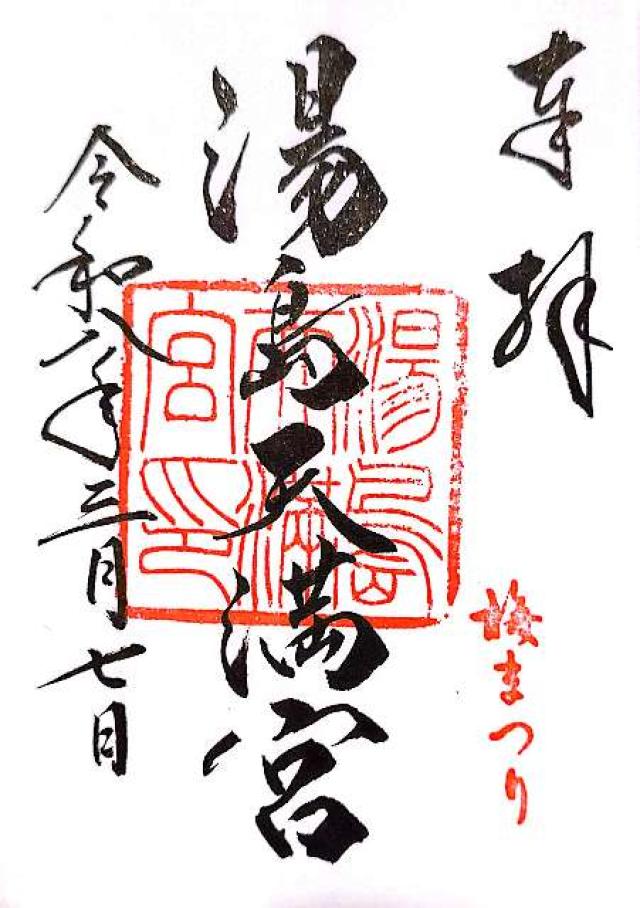 奉拝
梅まつり
湯島天満宮
湯島天満宮之印
令和八年三月七日